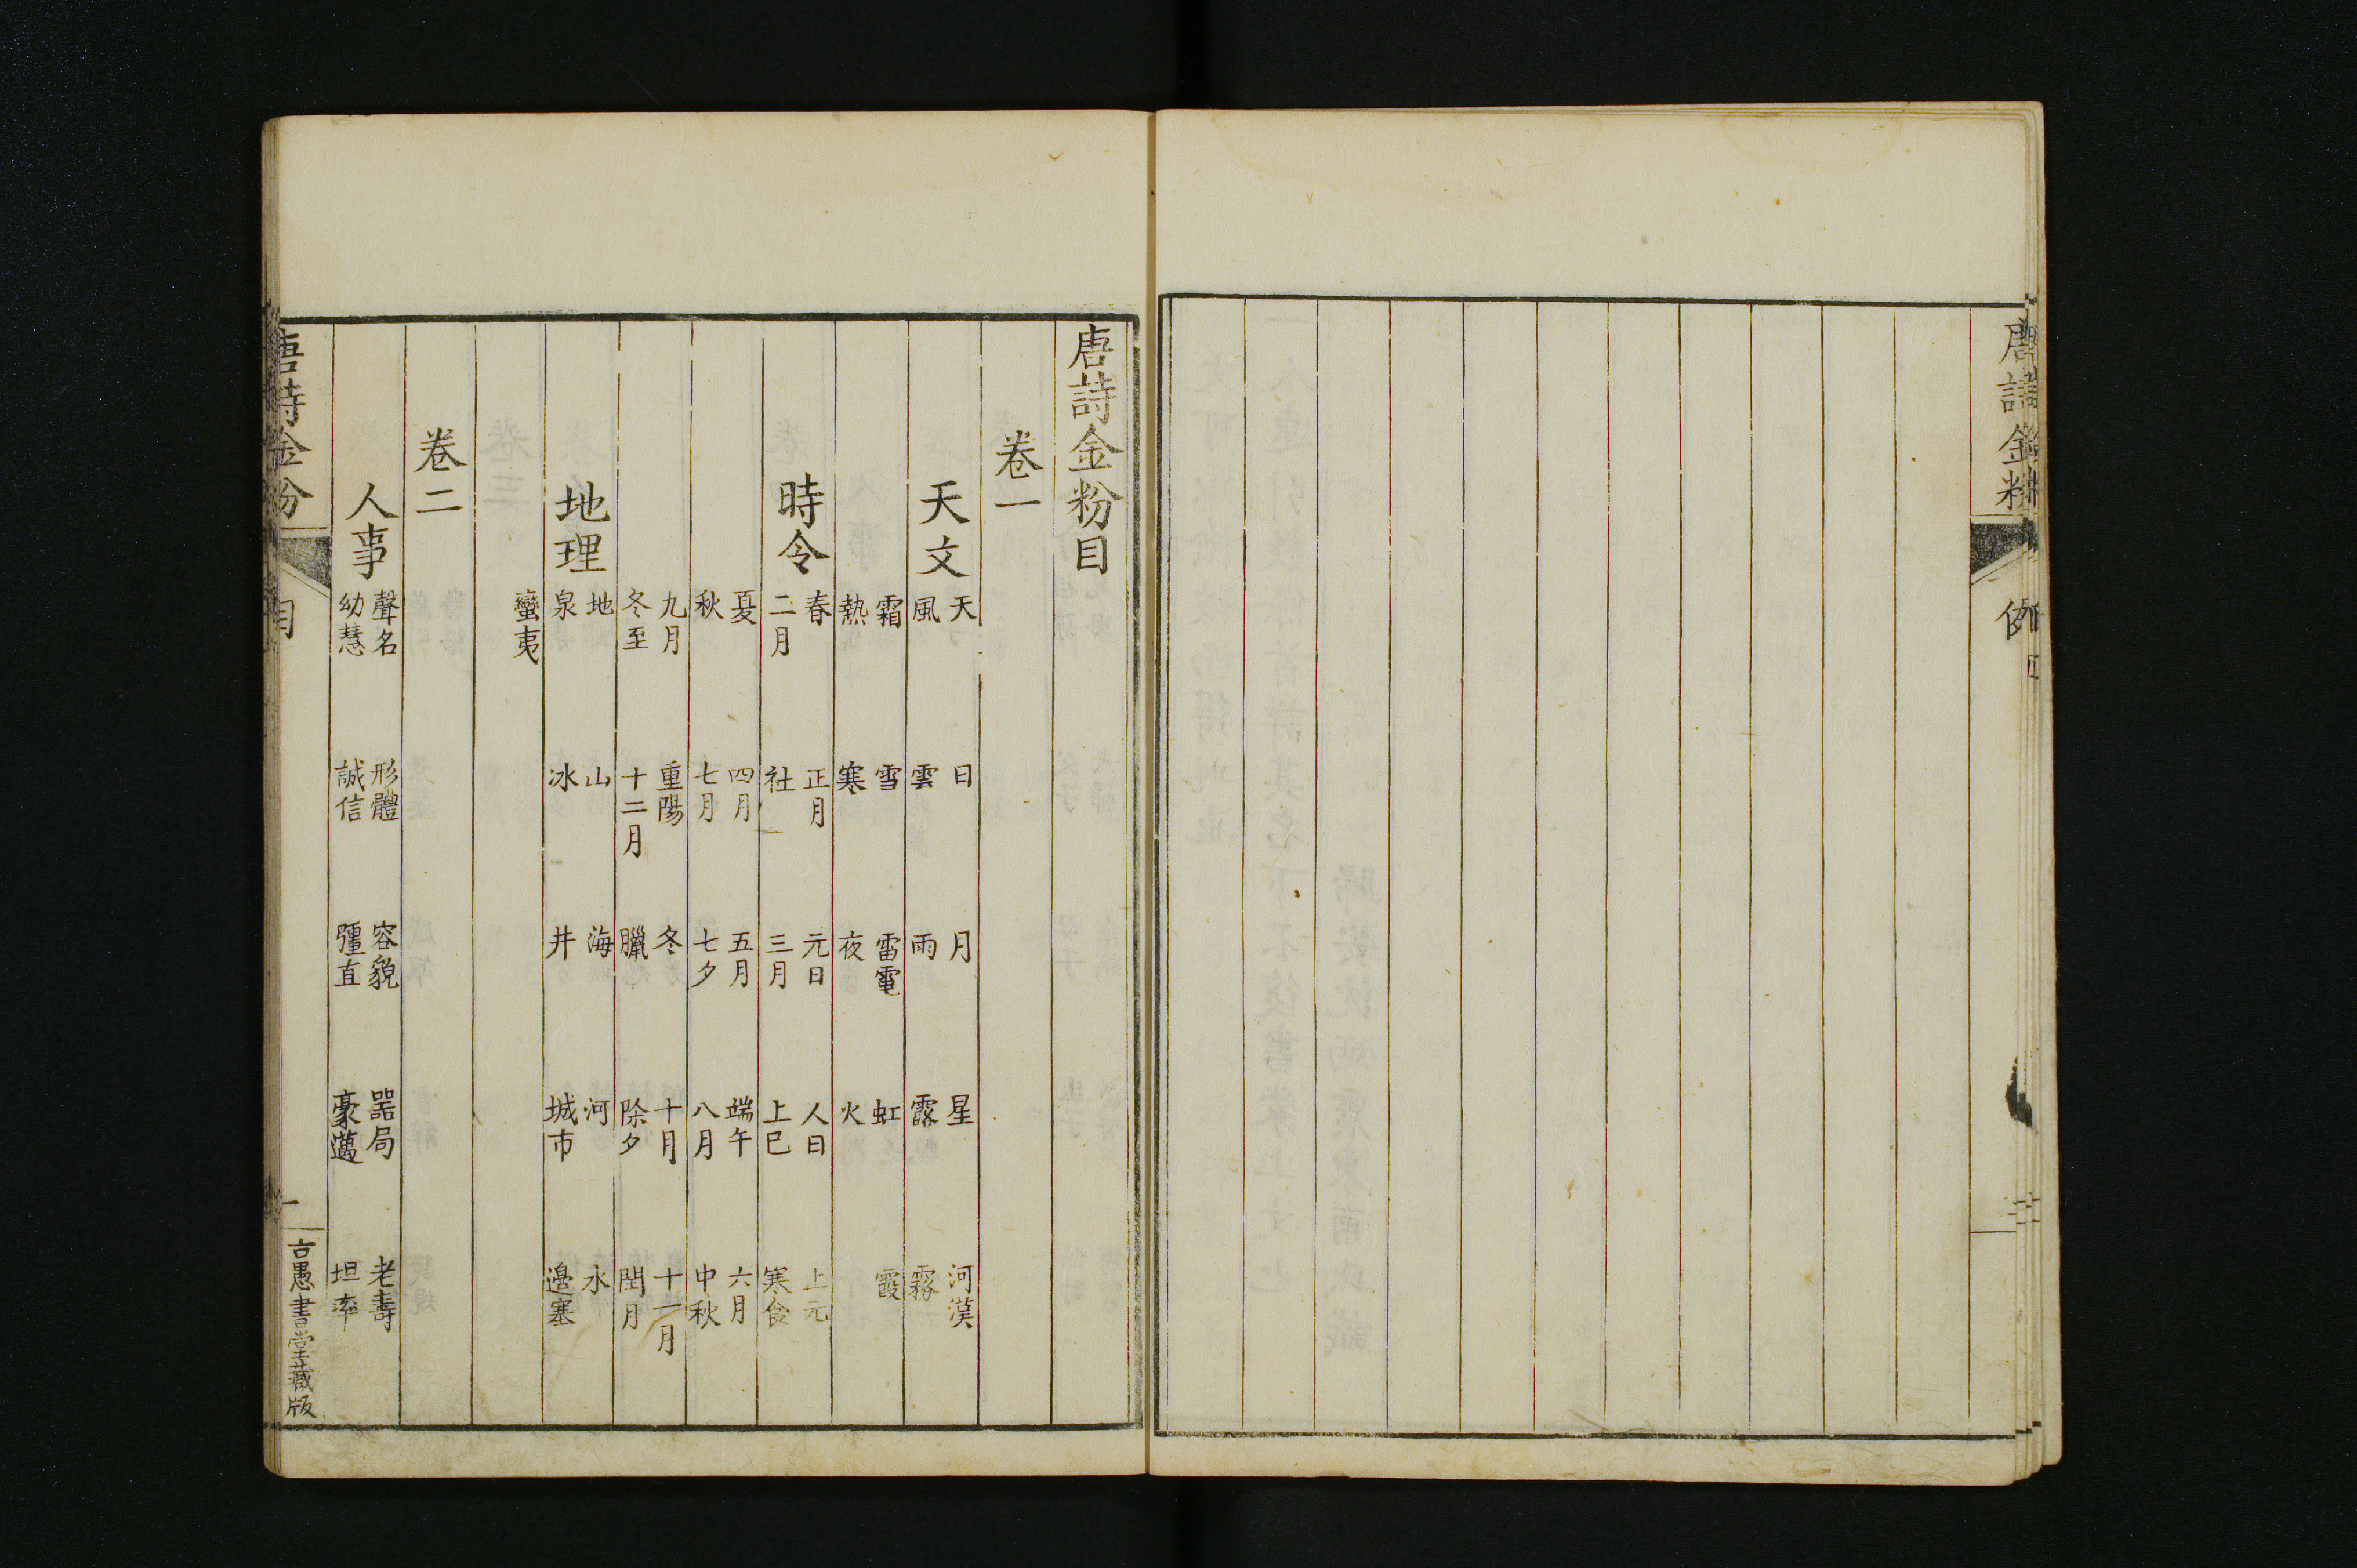 唐詩金粉
例
唐詩金粉目
卷一
天文
天 日 月 星 河漢
風 雲 雨 露 霧
霜 雪 雷電 虹 霞
熱 寒 夜 火
時令
春 正月 元日 人日 上元
二月 社 三月 上巳 寒食
夏 四月 五月 端午 六月
秋 七月 七夕 八月 中秋
九月 重陽 冬 十月 十一月
冬至 十二月 臘 除夕 閏月
地理
地 山 海 河 水
泉 冰 井 城市 邊塞
蠻夷
卷二
人事
聲名 形體 容貌 器局 老壽
幼慧 誠信 彊直 豪邁 坦率
唐詩金粉
目
一
古愚書堂藏版